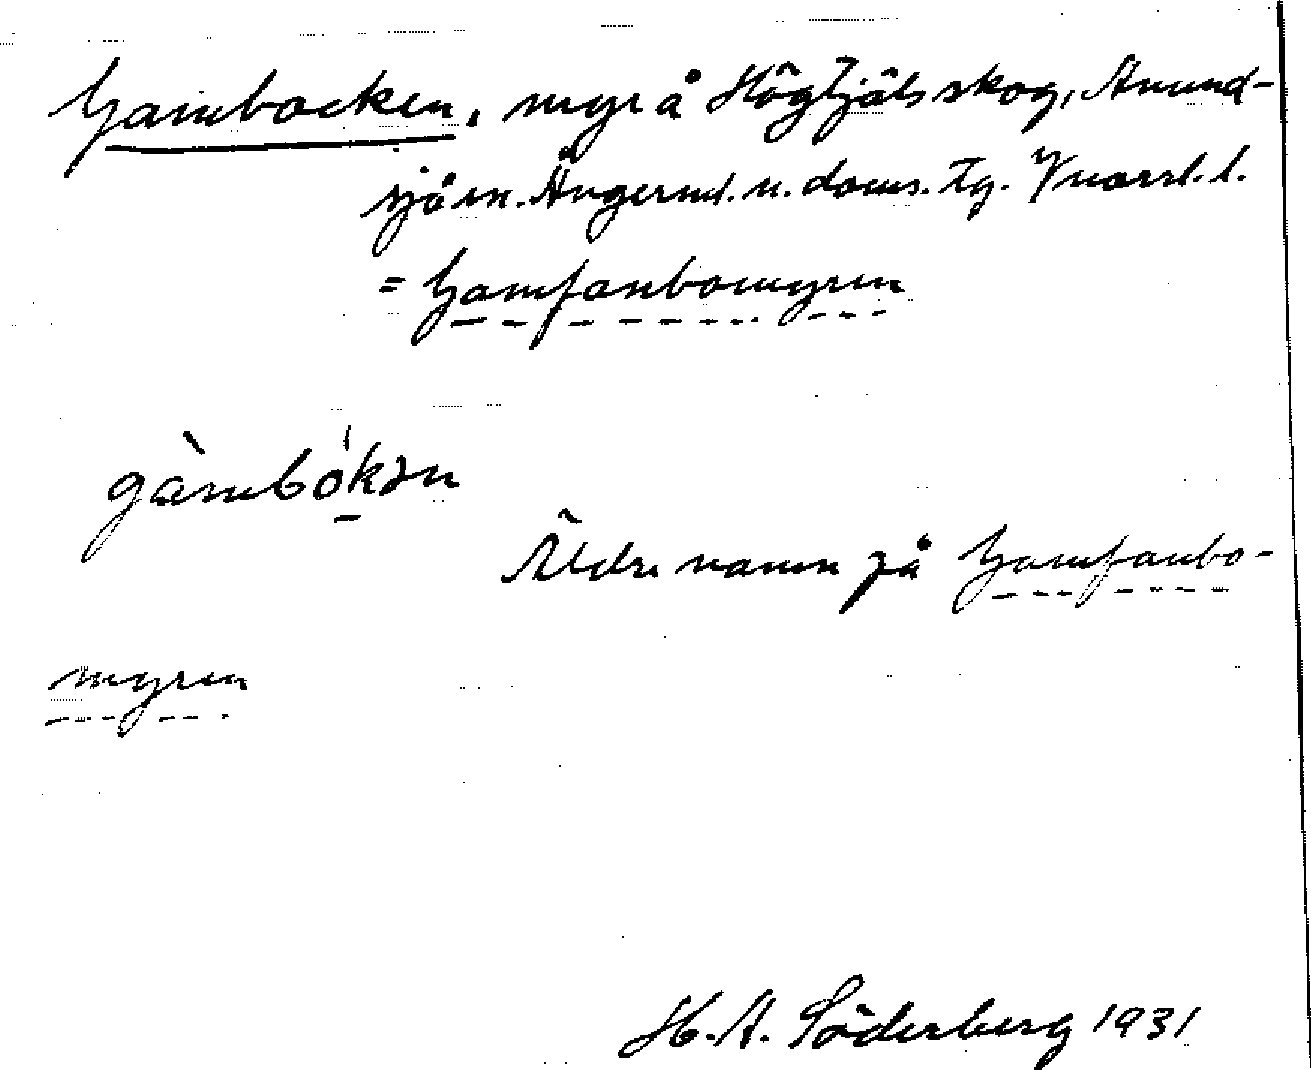 Gambocken, myr å Högtjäls skog, Anund-
sjö sn. Ångerml. n. doms. tg. Vnorrl. l.
= Gamfanbomyren
gàmbók
Äldre namn på Gamfanbo-
myren
H. A. Söderberg 1931